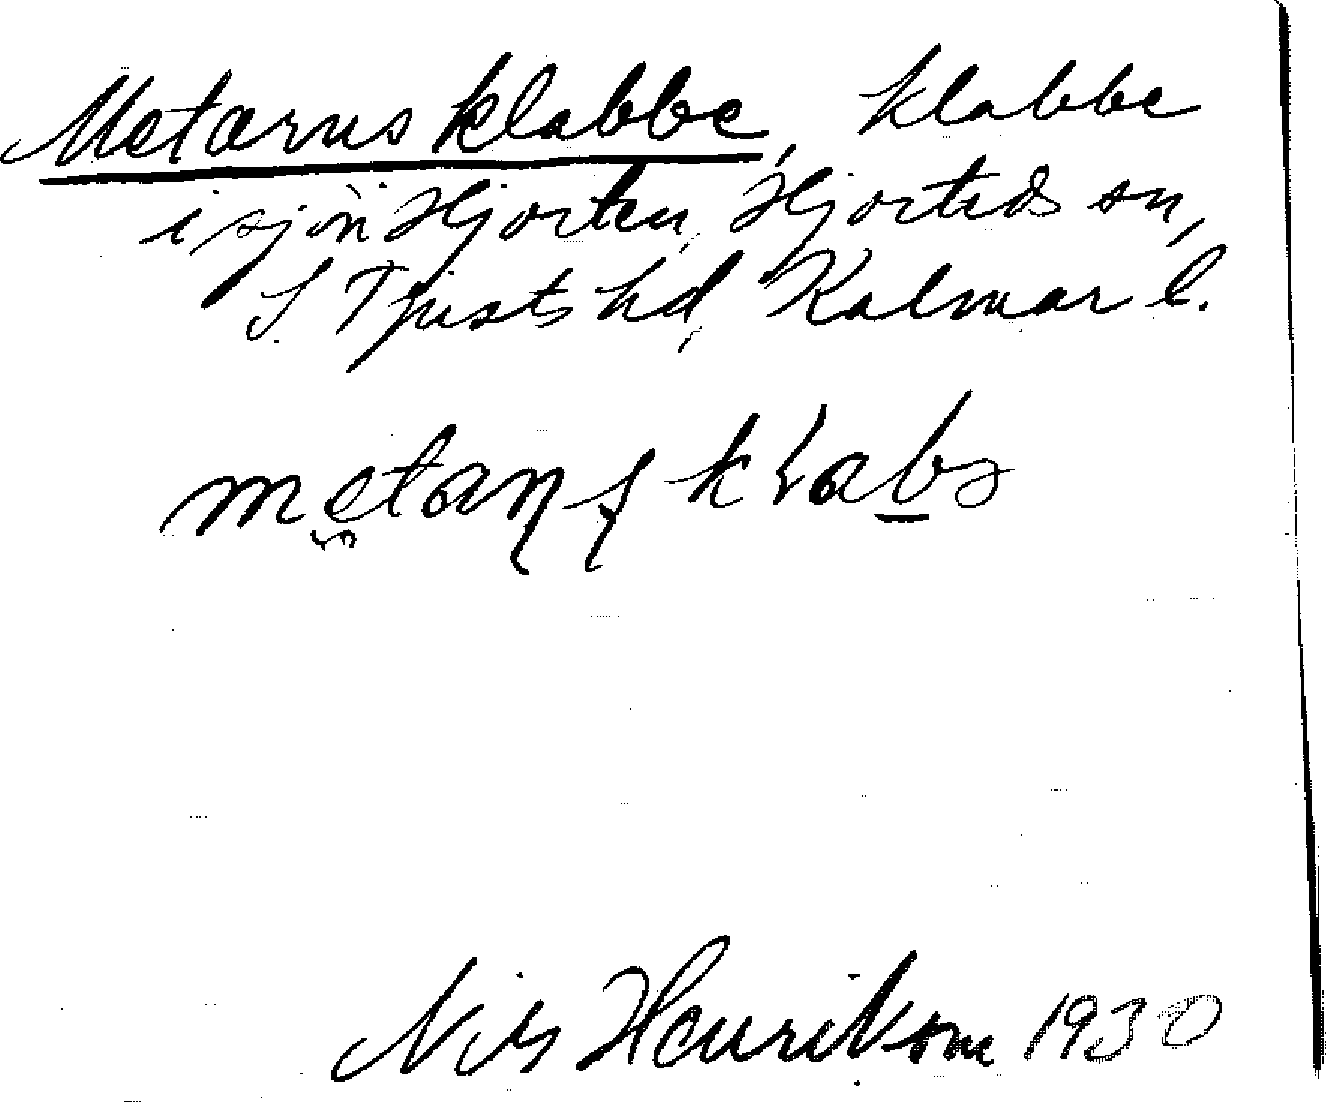 Metarns klabbe, klabbe
i sjön Hjorten, Hjorteds sn,
S. Tjusts hd, Kalmar l.
Nils Henrikson 1930